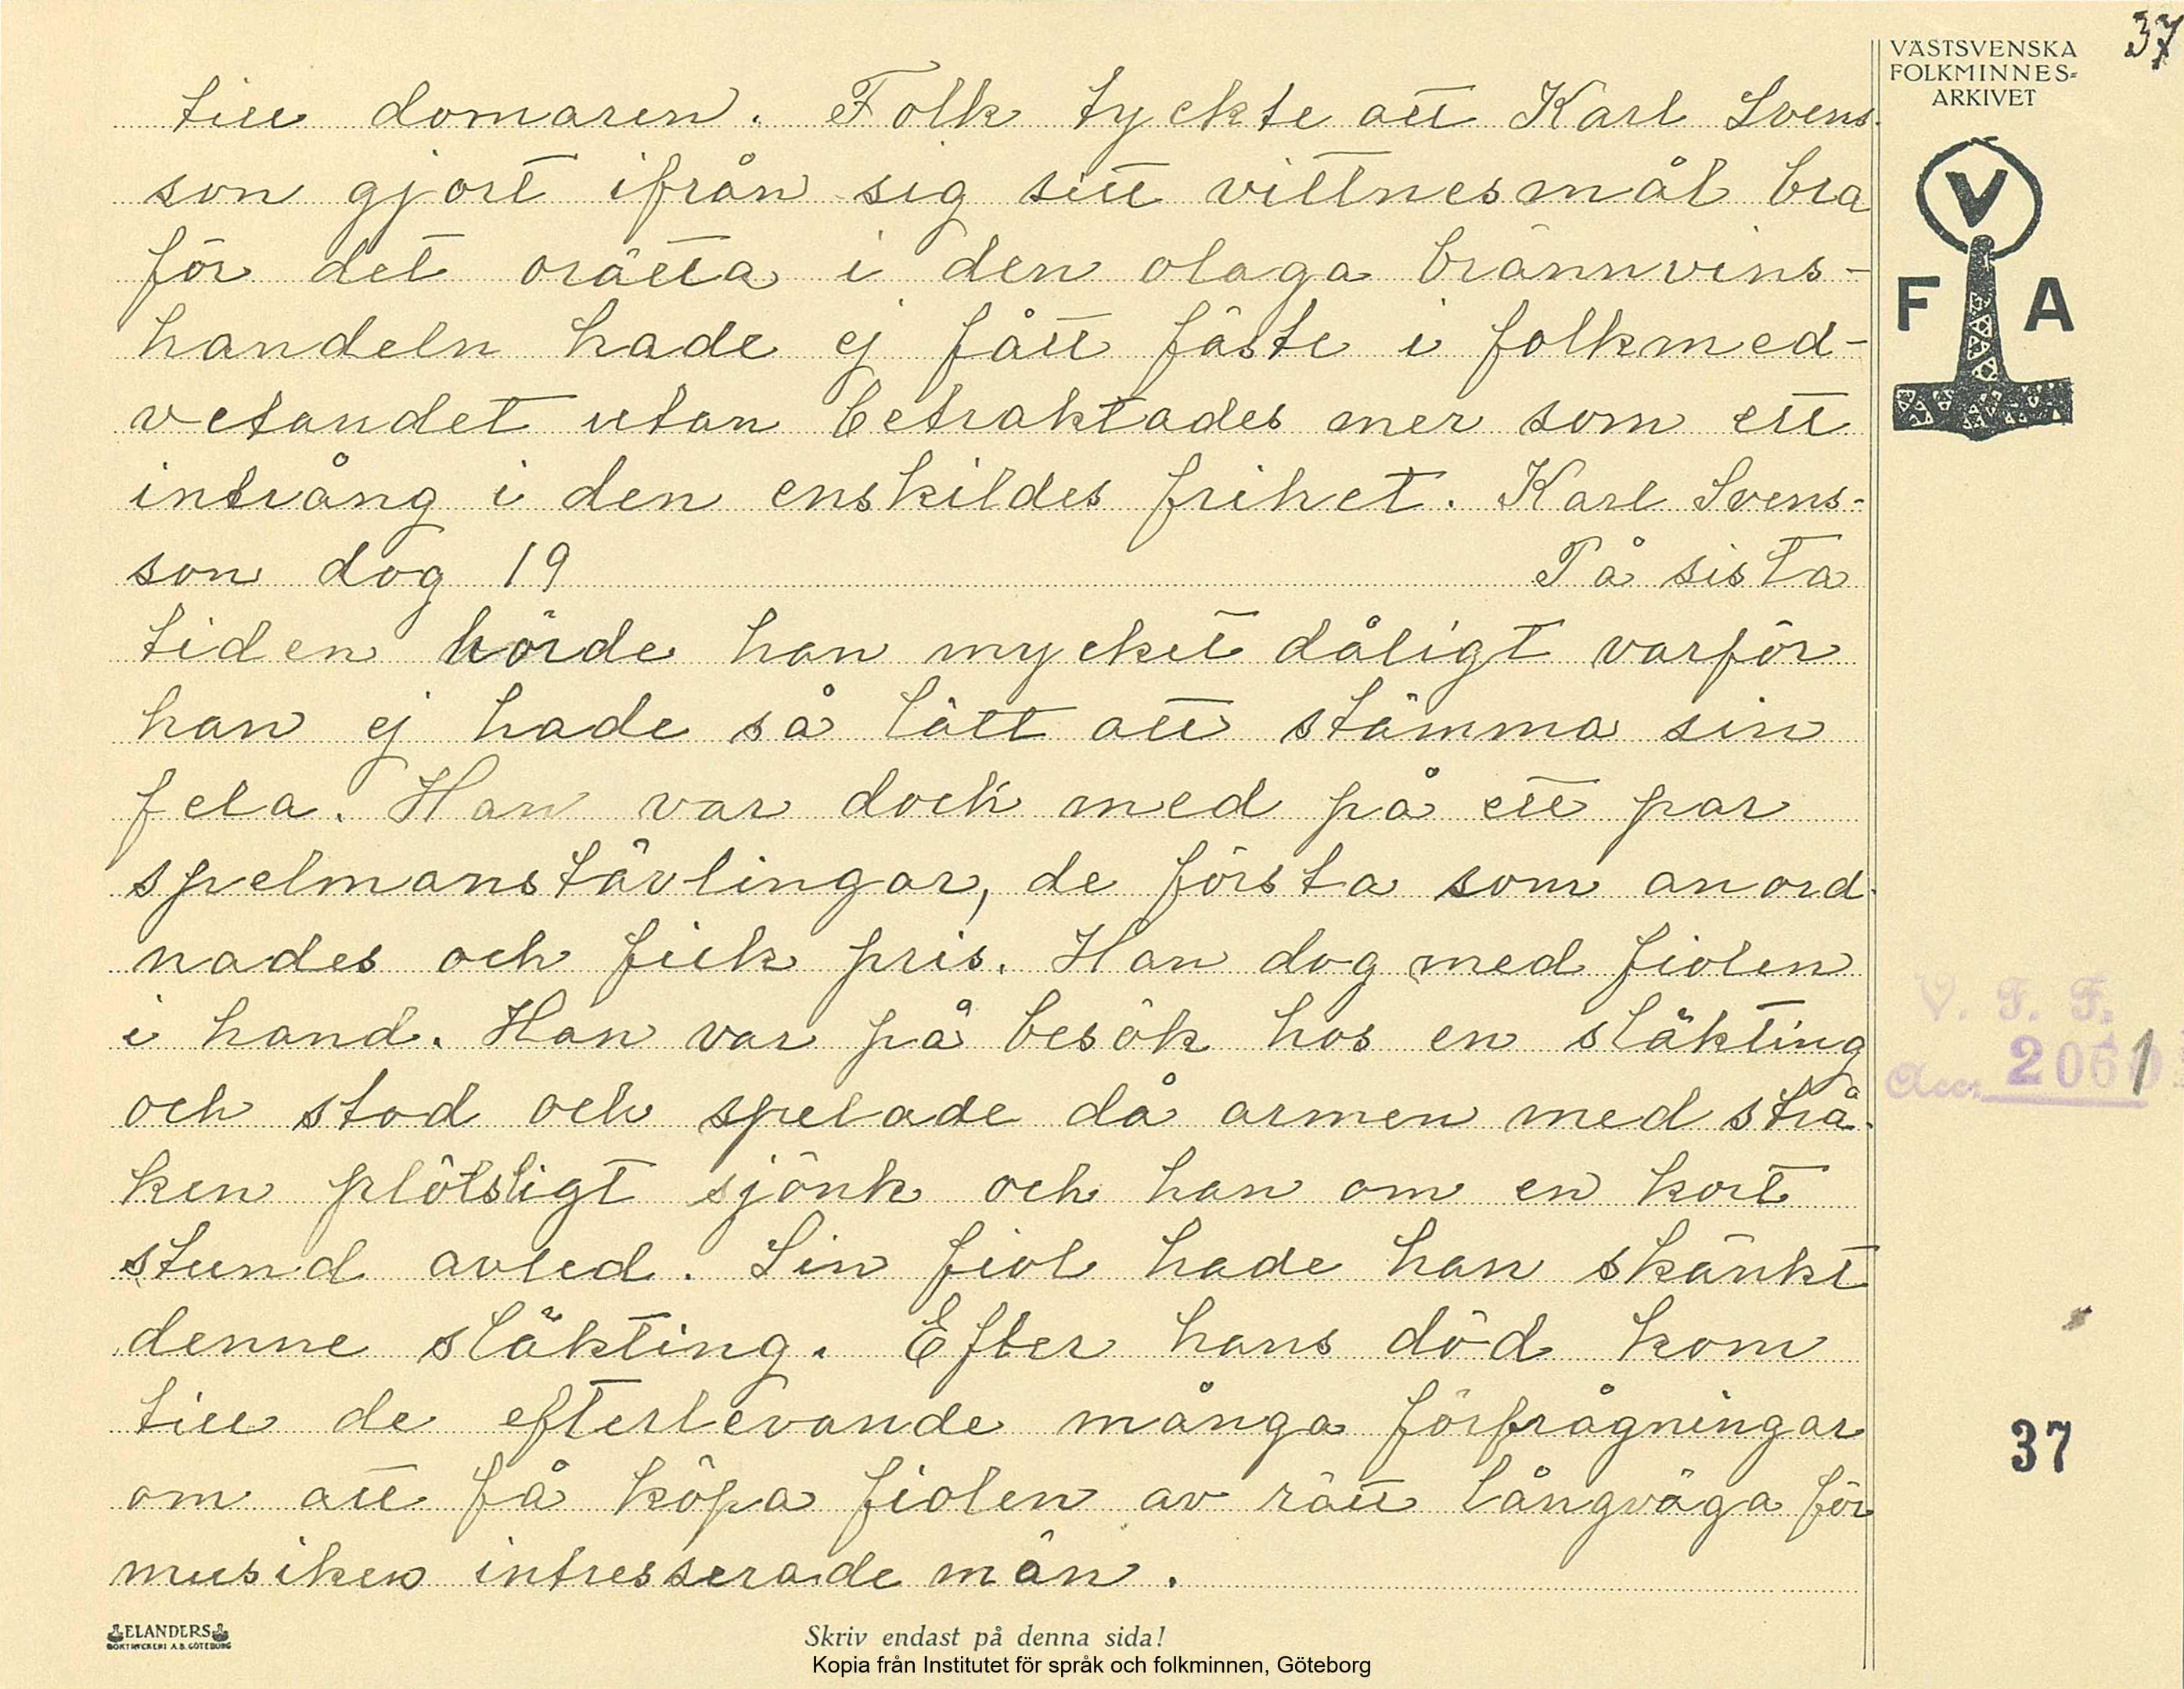 37
VÄSTSVENSKA
FOLKMINNES-
ARKIVET
V
F A
till domaren. Folk tyckte att Karl Svens-
son gjort ifrån sig sitt vittnesmål bra
för det orätta i den olaga brännvins-
handeln hade ej fått fäste i folkmed-
vetandet utan betraktades mer som ett
intrång i den enskildes frihet. Karl Svens-
son dog 19 På sista
tiden hörde han mycket dåligt varför
han ej hade så lätt att stämma sin
fela. Han var dock med på ett par
spelmanstävlingar, de första som anord-
nades och fick pris. Han dog med fiolen
i hand. Han var på besök hos en släkting
och stod och spelade då armen med strå-
ken plötsligt sjönk och han om en kort
stund avled. Sin fiol hade han skänkt
denne släkting. Efter hans död kom
till de efterlevande många förfrågningar
om att få köpa fiolen av rätt långväga för
musiken intresserade män.
V. F. F.
Acc. 2061
37
ELANDERS
BOKTRYCKERI A.B. GÖTEBORG
Skriv endast på denna sida!
Kopia från Institutet för språk och folkminnen, Göteborg